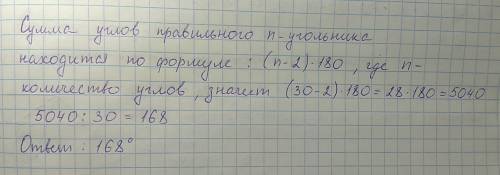 Сумма углов правильного n-угольника
находится по формуле : (n-2)·180 , где n-
количество углов , значит (30-2)·180=28·180=5040
5040:30=168
Ответ : 168°